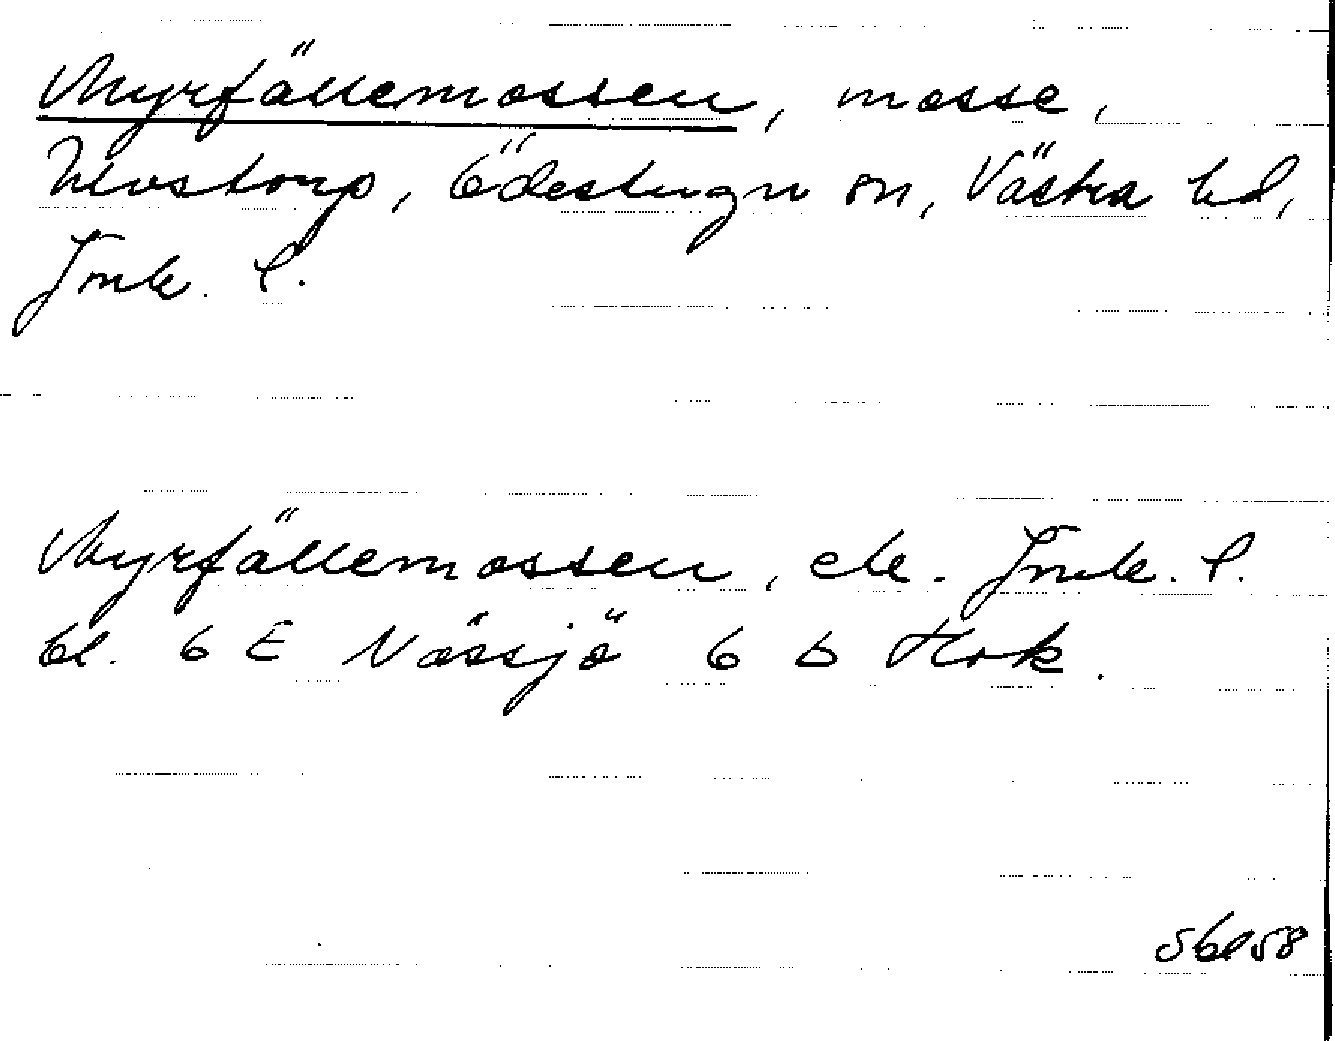 Myrfällemossen, mosse,
Ulvstorp, Ödestugu sn, Västra hd,
Jönk. l.
Myrfällemossen, ek. Jönk. l.
bl. 6 E Nässjö 6 D Hok.